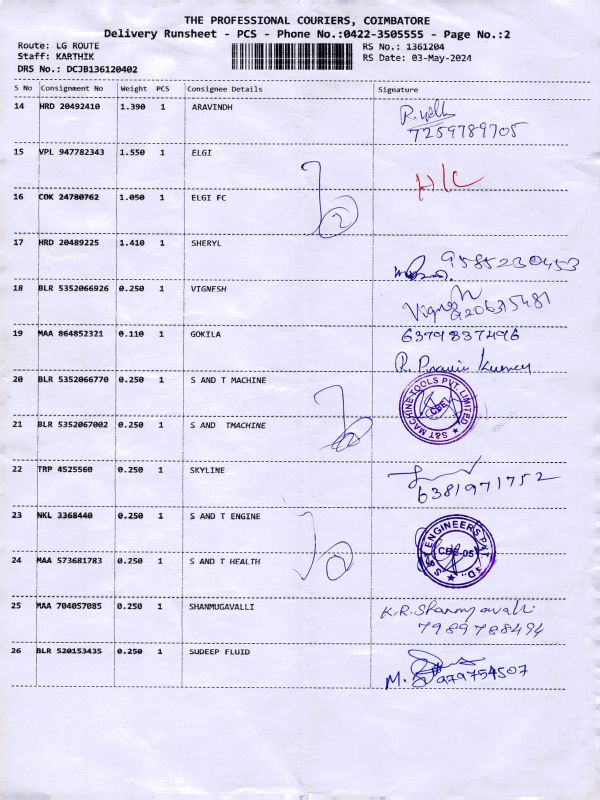 THE PROFESSIONAL COURIERS, COIMBATORE
Delivery Runsheet - PCS - Phone No.:0422-3505555 - Page No.:2
Route: LG ROUTE RS No.: 1361204
Staff: KARTHIK RS Date: 03-May-2024
DRS No.: DCJB136120402
S No Consignment No Weight PCS Consignee Details Signature
14 HRD 20492410 1.390 1 ARAVINDH
7259789705
15 VPL 947782343 1.550 1 ELGI H/C
16 COK 24780762 1.050 1 ELGI FC
17 HRD 20489225 1.410 1 SHERYL 9585230453
18 BLR 5352066926 0.250 1 VIGNESH Vignesh
19 MAA 864852321 0.110 1 GOKILA 6379837496
R. Pravin Kumar
20 BLR 5352066770 0.250 1 S AND T MACHINE
S&T MACHINE TOOLS PVT. LIMITED
CBE
21 BLR 5352067002 0.250 1 S AND TMACHINE
22 TRP 4525560 0.250 1 SKYLINE 6381971752
23 NKL 3368440 0.250 1 S AND T ENGINE
S&T ENGINEERS P LTD.
CBE-05
24 MAA 573681783 0.250 1 S AND T HEALTH
25 MAA 704057085 0.250 1 SHANMUGAVALLI K.R.Shanmugavalli
7989788494
26 BLR 520153435 0.250 1 SUDEEP FLUID M.
979754507